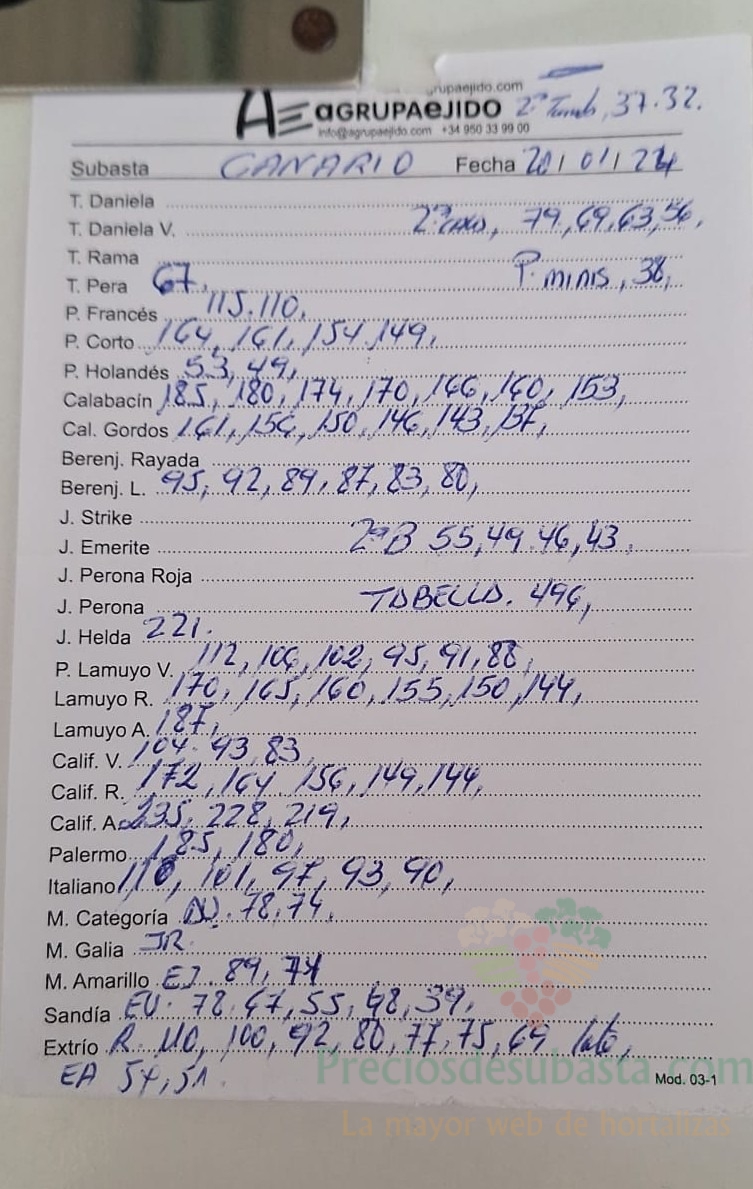 rupaejido.com
AGRUPAEJIDO 2ª Tamb, 37.32.
info@agrupaejido.com +34 950 33 99 00
Subasta CANARIO Fecha 20/01/24
T. Daniela
T. Daniela V. 2ª 79,69,63,56,
T. Rama
T. Pera 67, P. minis, 38,
P. Francés 115.110,
P. Corto 164, 161, 154, 149,
P. Holandés 53, 49,
Calabacín 185, 180, 174, 170, 166, 160, 153,
Cal. Gordos 161, 156, 150, 146, 143, 137,
Berenj. Rayada
Berenj. L. 95, 92, 89, 87, 83, 80,
J. Strike
J. Emerite 2ªB 55,49.46,43.
J. Perona Roja
J. Perona TABELLA. 496,
J. Helda 221.
P. Lamuyo V. 112, 106, 102, 95, 91, 88,
Lamuyo R. 170, 165, 160, 155, 150, 144,
Lamuyo A. 187,
Calif. V. 104. 93, 83,
Calif. R. 172, 164. 156, 149, 144,
Calif. A. 235, 228, 219,
Palermo 185, 180,
Italiano 110, 101, 97, 93, 90,
M. Categoría 78,74.
M. Galia JR.
M. Amarillo EJ. 89,74
Sandía EV. 78.67,55,48,39,
Extrío R. 110, 100, 92, 80, 77, 75, 69
EA 54,51.
Mod. 03-1
Preciosdesubasta.com
La mayor web de hortalizas